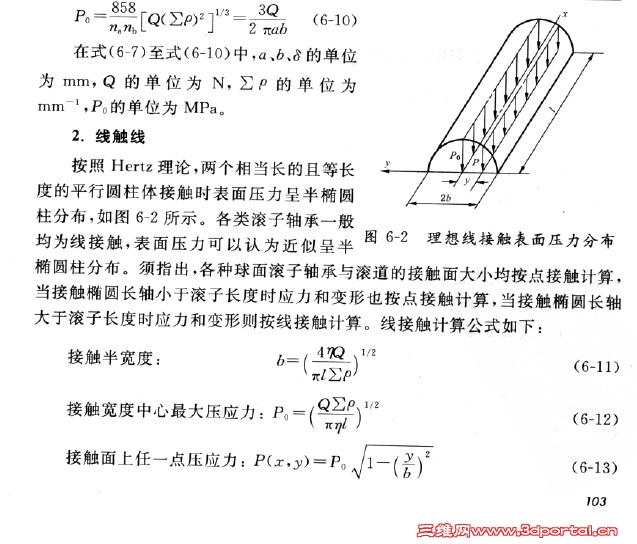 P₀=858/(nₐn_b)[Q(∑ρ)²]^{1/3}=3Q/(2πab) (6-10)
在式(6-7)至式(6-10)中,a、b、δ的单位
为 mm,Q 的单位为 N,∑ρ 的单位为
mm⁻¹,P₀的单位为 MPa。
2. 线触线
按照 Hertz 理论,两个相当长的且等长
度的平行圆柱体接触时表面压力呈半椭圆
柱分布,如图 6-2 所示。各类滚子轴承一般
均为线接触,表面压力可以认为近似呈半
x
l
P₀
P
y
y
2b
图 6-2 理想线接触表面压力分布
椭圆柱分布。须指出,各种球面滚子轴承与滚道的接触面大小均按点接触计算,
当接触椭圆长轴小于滚子长度时应力和变形也按点接触计算,当接触椭圆长轴
大于滚子长度时应力和变形则按线接触计算。线接触计算公式如下:
接触半宽度: b=(4ηQ/(πl∑ρ))^{1/2} (6-11)
接触宽度中心最大压应力: P₀=(Q∑ρ/(πηl))^{1/2} (6-12)
接触面上任一点压应力: P(x,y)=P₀√(1-(y/b)²) (6-13)
103
三维网www.3dportal.cn